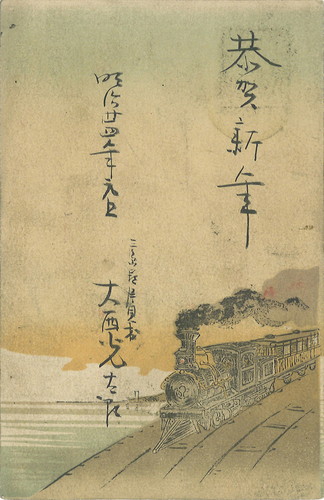 恭賀新年
明治廿四年元旦
大西光太郎